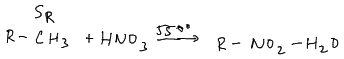 S_R
R- CH_3 + HNO_3 \xrightarrow{55°°} R- NO_2 -H_2O